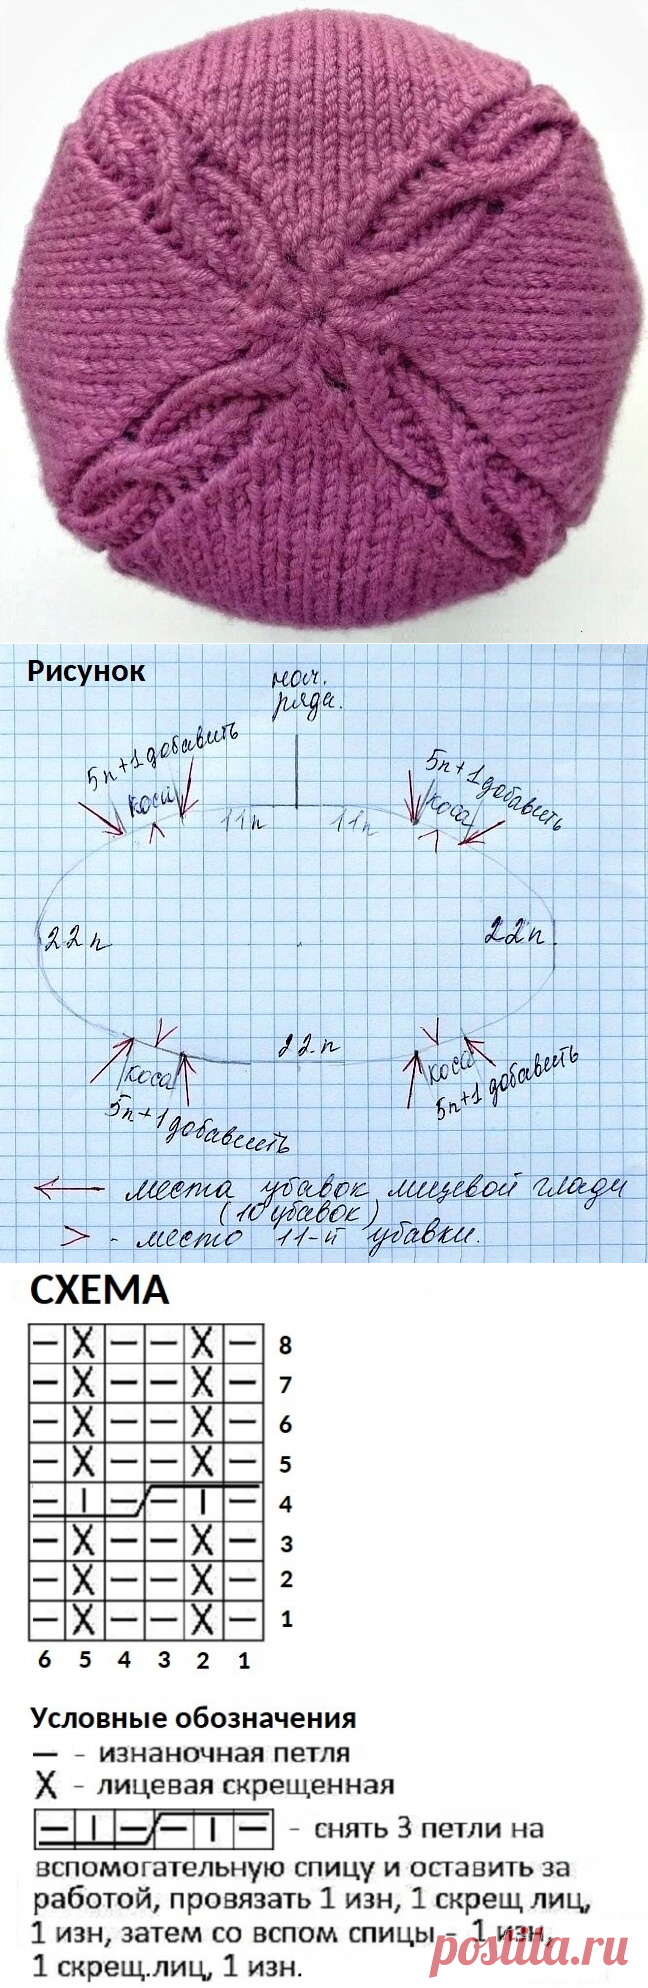 Рисунок
нач.
ряда.
5п+1 добавить
коса
11п
11п
5п+1 добавить
коса
22п
22п.
22п
коса
5п+1 добавить
коса
5п+1 добавить
← места убавок лицевой глади
(10 убавок)
> - место 11-й убавки.
СХЕМА
— X — — X — 8
— X — — X — 7
— X — — X — 6
— X — — X — 5
— I — — I — 4
— X — — X — 3
— X — — X — 2
— X — — X — 1
6 5 4 3 2 1
Условные обозначения
— - изнаночная петля
X - лицевая скрещенная
— I — — I — - снять 3 петли на
вспомогательную спицу и оставить за
работой, провязать 1 изн, 1 скрещ лиц,
1 изн, затем со вспом спицы - 1 изн,
1 скрещ.лиц, 1 изн.
postila.ru